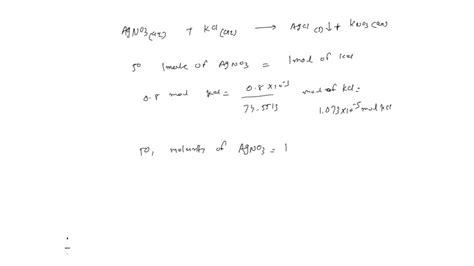 AgNO3(aq) + KCl(aq) → AgCl(s)↓ + KNO3(aq)
so 1mole of AgNO3 = 1mol of KCl
0.8 mol KCl = 0.8 × 10^-3 / 74.5513 mol of KCl =
1.073×10^-5 mol KCl
so, molarity of AgNO3 = 1